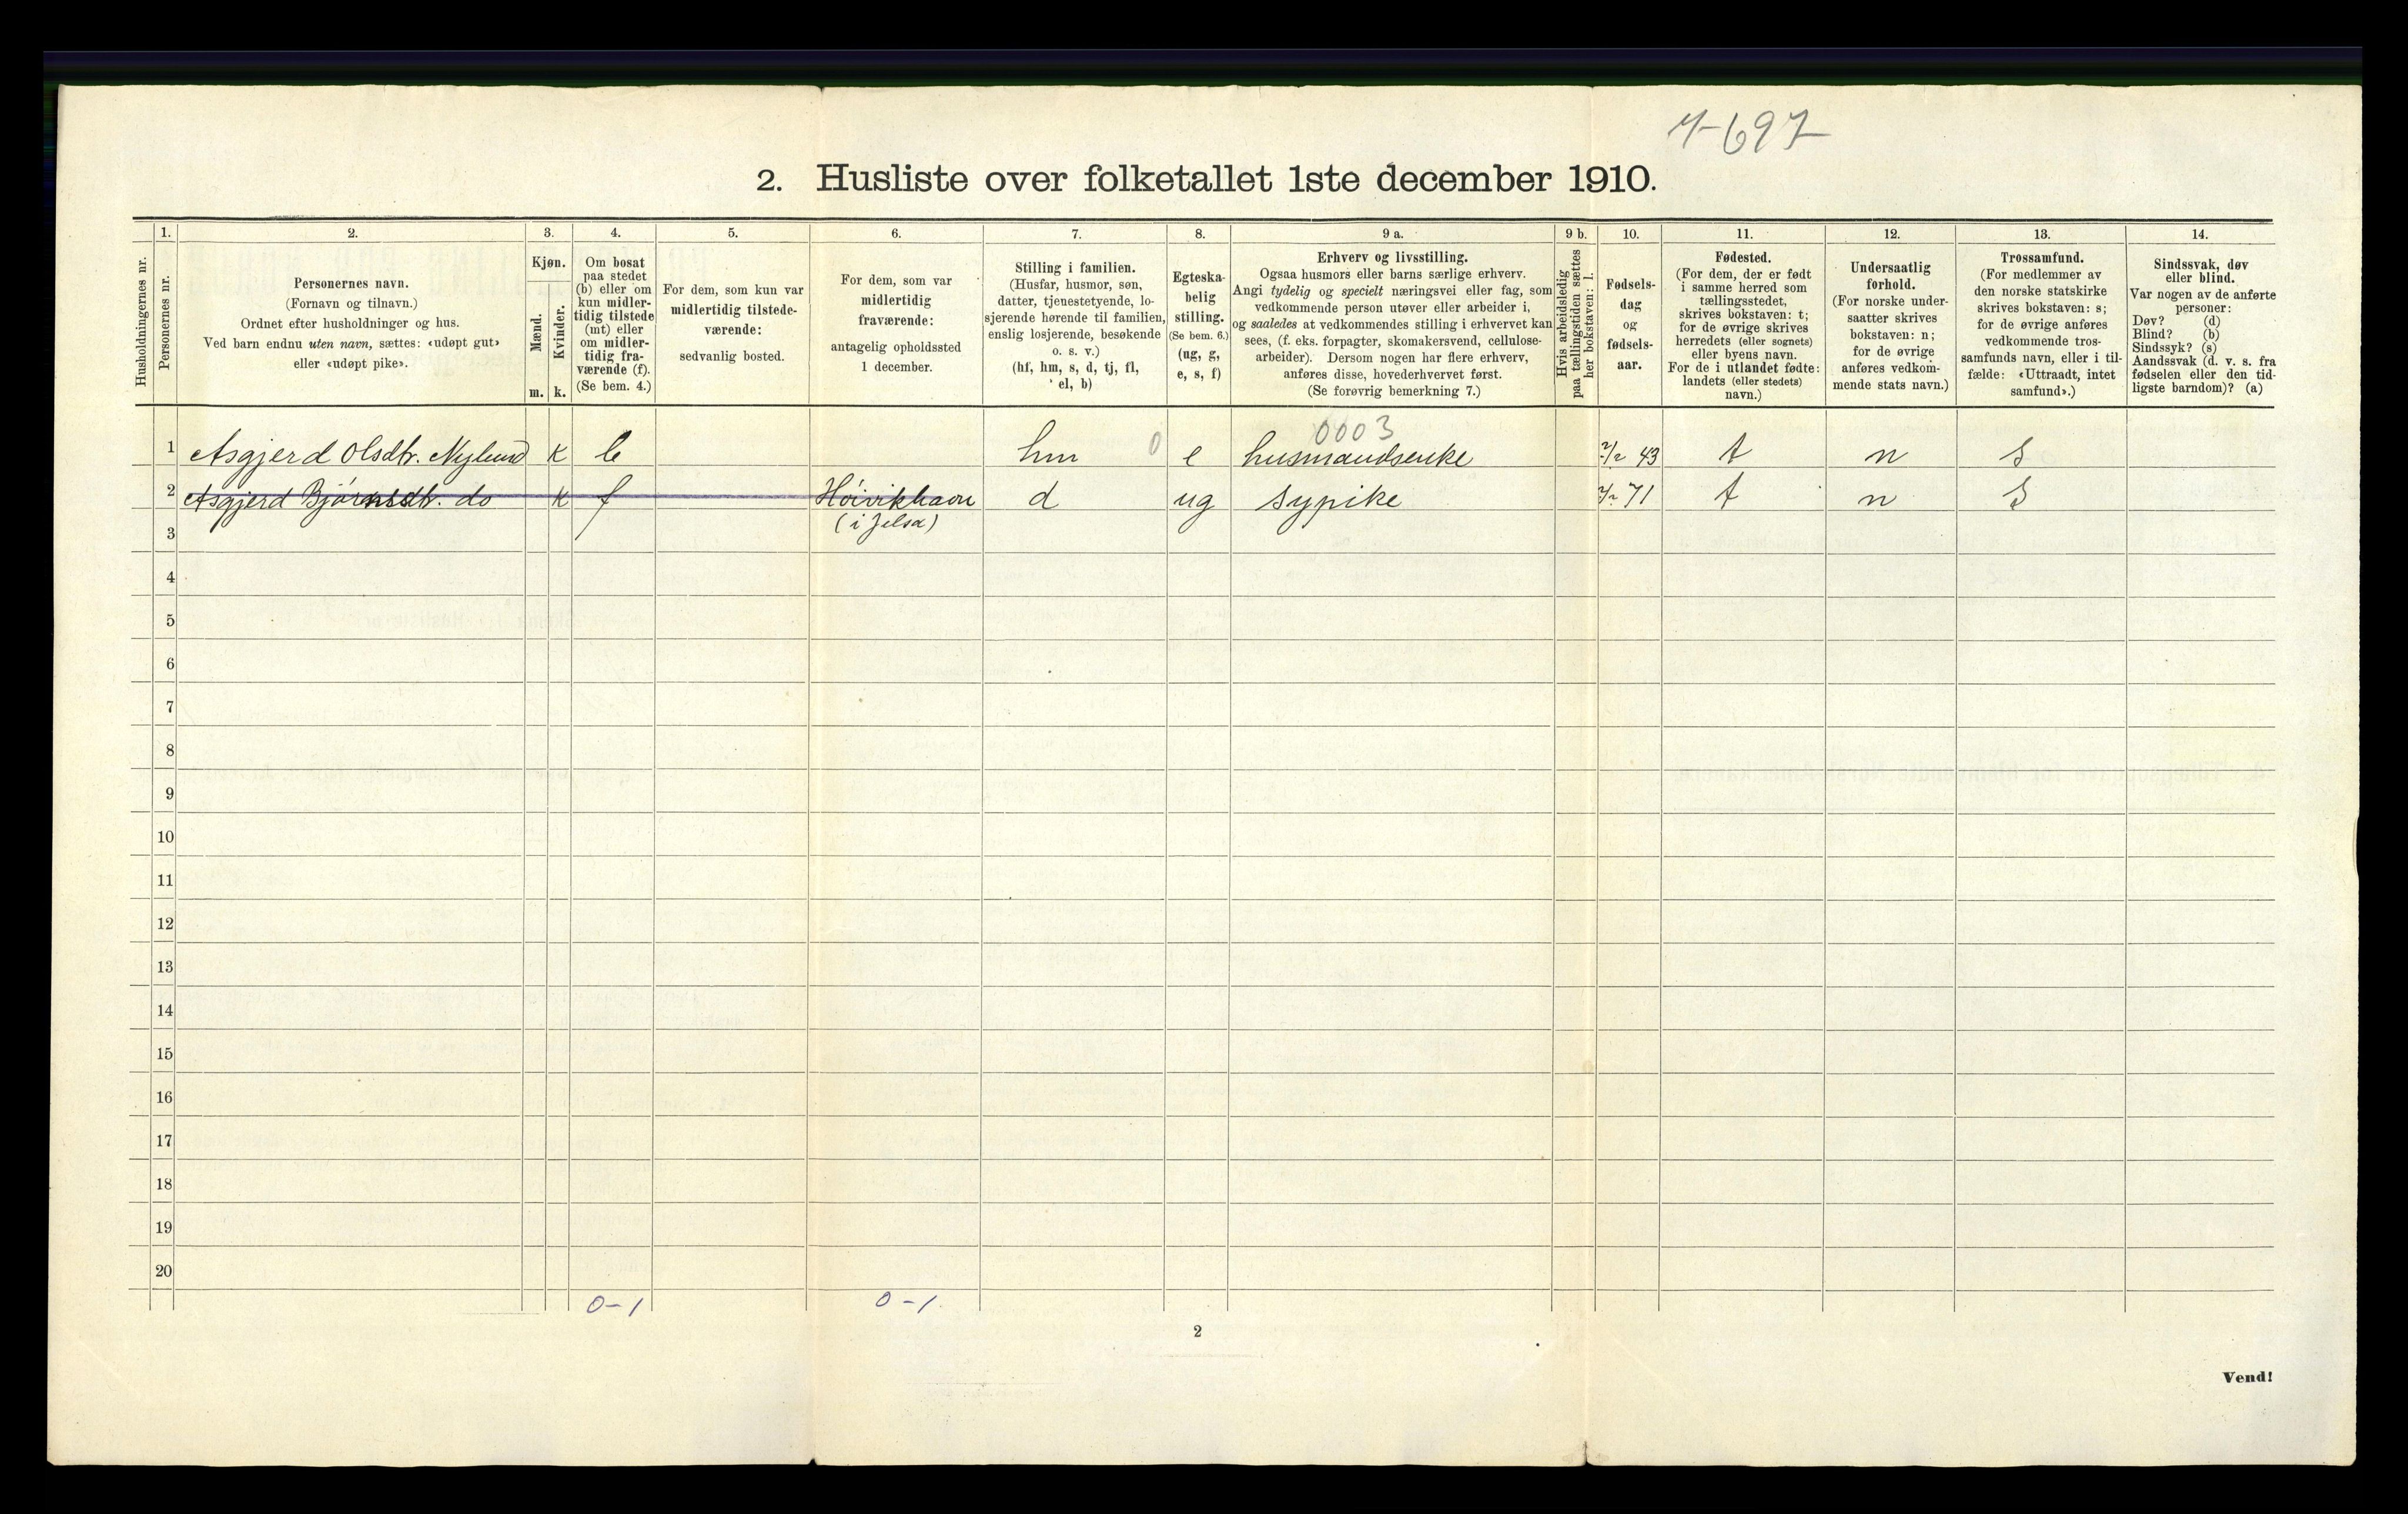 7-697
2. Husliste over folketallet 1ste december 1910.
1. 2. 3. 4. 5. 6. 7. 8. 9 a. 9 b. 10. 11. 12. 13. 14.
Husholdningernes nr.
Personernes nr.
Personernes navn.
(Fornavn og tilnavn.)
Ordnet efter husholdninger og hus.
Ved barn endnu uten navn, sættes: «udøpt gut»
eller «udøpt pike».
Kjøn.
Mænd.
Kvinder.
m. k.
Om bosat
paa stedet
(b) eller om
kun midler-
tidig tilstede
(mt) eller
om midler-
tidig fra-
værende (f).
(Se bem. 4.)
For dem, som kun var
midlertidig tilstede-
værende:
sedvanlig bosted.
For dem, som var
midlertidig
fraværende:
antagelig opholdssted
1 december.
Stilling i familien.
(Husfar, husmor, søn,
datter, tjenestetyende, lo-
sjerende hørende til familien,
enslig losjerende, besøkende
o. s. v.)
(hf, hm, s, d, tj, fl,
el, b)
Egteska-
belig
stilling.
(Se bem. 6.)
(ug, g,
e, s, f)
Erhverv og livsstilling.
Ogsaa husmors eller barns særlige erhverv.
Angi tydelig og specielt næringsvei eller fag, som
vedkommende person utøver eller arbeider i,
og saaledes at vedkommendes stilling i erhvervet kan
sees, (f. eks. forpagter, skomakersvend, cellulose-
arbeider). Dersom nogen har flere erhverv,
anføres disse, hovederhvervet først.
(Se forøvrig bemerkning 7.)
Hvis arbeidsledig
paa tællingstiden sættes
her bokstaven: l.
Fødsels-
dag
og
fødsels-
aar.
Fødested.
(For dem, der er født
i samme herred som
tællingsstedet,
skrives bokstaven: t;
for de øvrige skrives
herredets (eller sognets)
eller byens navn.
For de i utlandet fødte:
landets (eller stedets)
navn.)
Undersaatlig
forhold.
(For norske under-
saatter skrives
bokstaven: n;
for de øvrige
anføres vedkom-
mende stats navn.)
Trossamfund.
(For medlemmer av
den norske statskirke
skrives bokstaven: s;
for de øvrige anføres
vedkommende tros-
samfunds navn, eller i til-
fælde: «Uttraadt, intet
samfund».)
Sindssvak, døv
eller blind.
Var nogen av de anførte
personer:
Døv? (d)
Blind? (b)
Sindssyk? (s)
Aandssvak (d. v. s. fra
fødselen eller den tid-
ligste barndom)? (a)
0003
1 Asgjerd Olsdtr. Nylund k b hm 0 e husmandsenke 2/2 43 t n s
2 Asgjerd Bjørnsdtr. do k f Høivikhavn d ug sypike 71 t n s
(i Jelsa)
3
4
5
6
7
8
9
10
11
12
13
14
15
16
17
18
19
20
0-1 0-1
2
Vend!